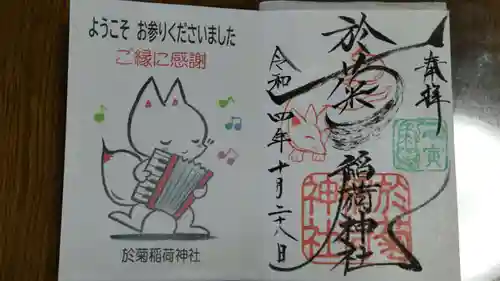 ようこそ お参りくださいました
ご縁に感謝
於菊稲荷神社
奉拝
於菊
稲荷神社
令和四年十月二十八日
於菊
神社